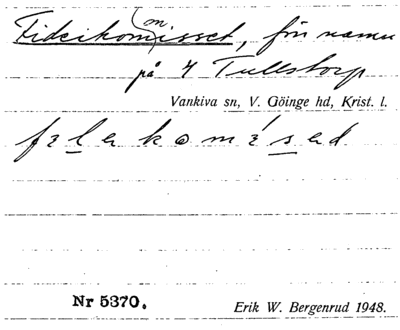 Fideikommisset, förr namn
på 4 Tullstorp
Vankiva sn, V. Göinge hd, Krist. l.
Nr 5370.
Erik W. Bergenrud 1948.